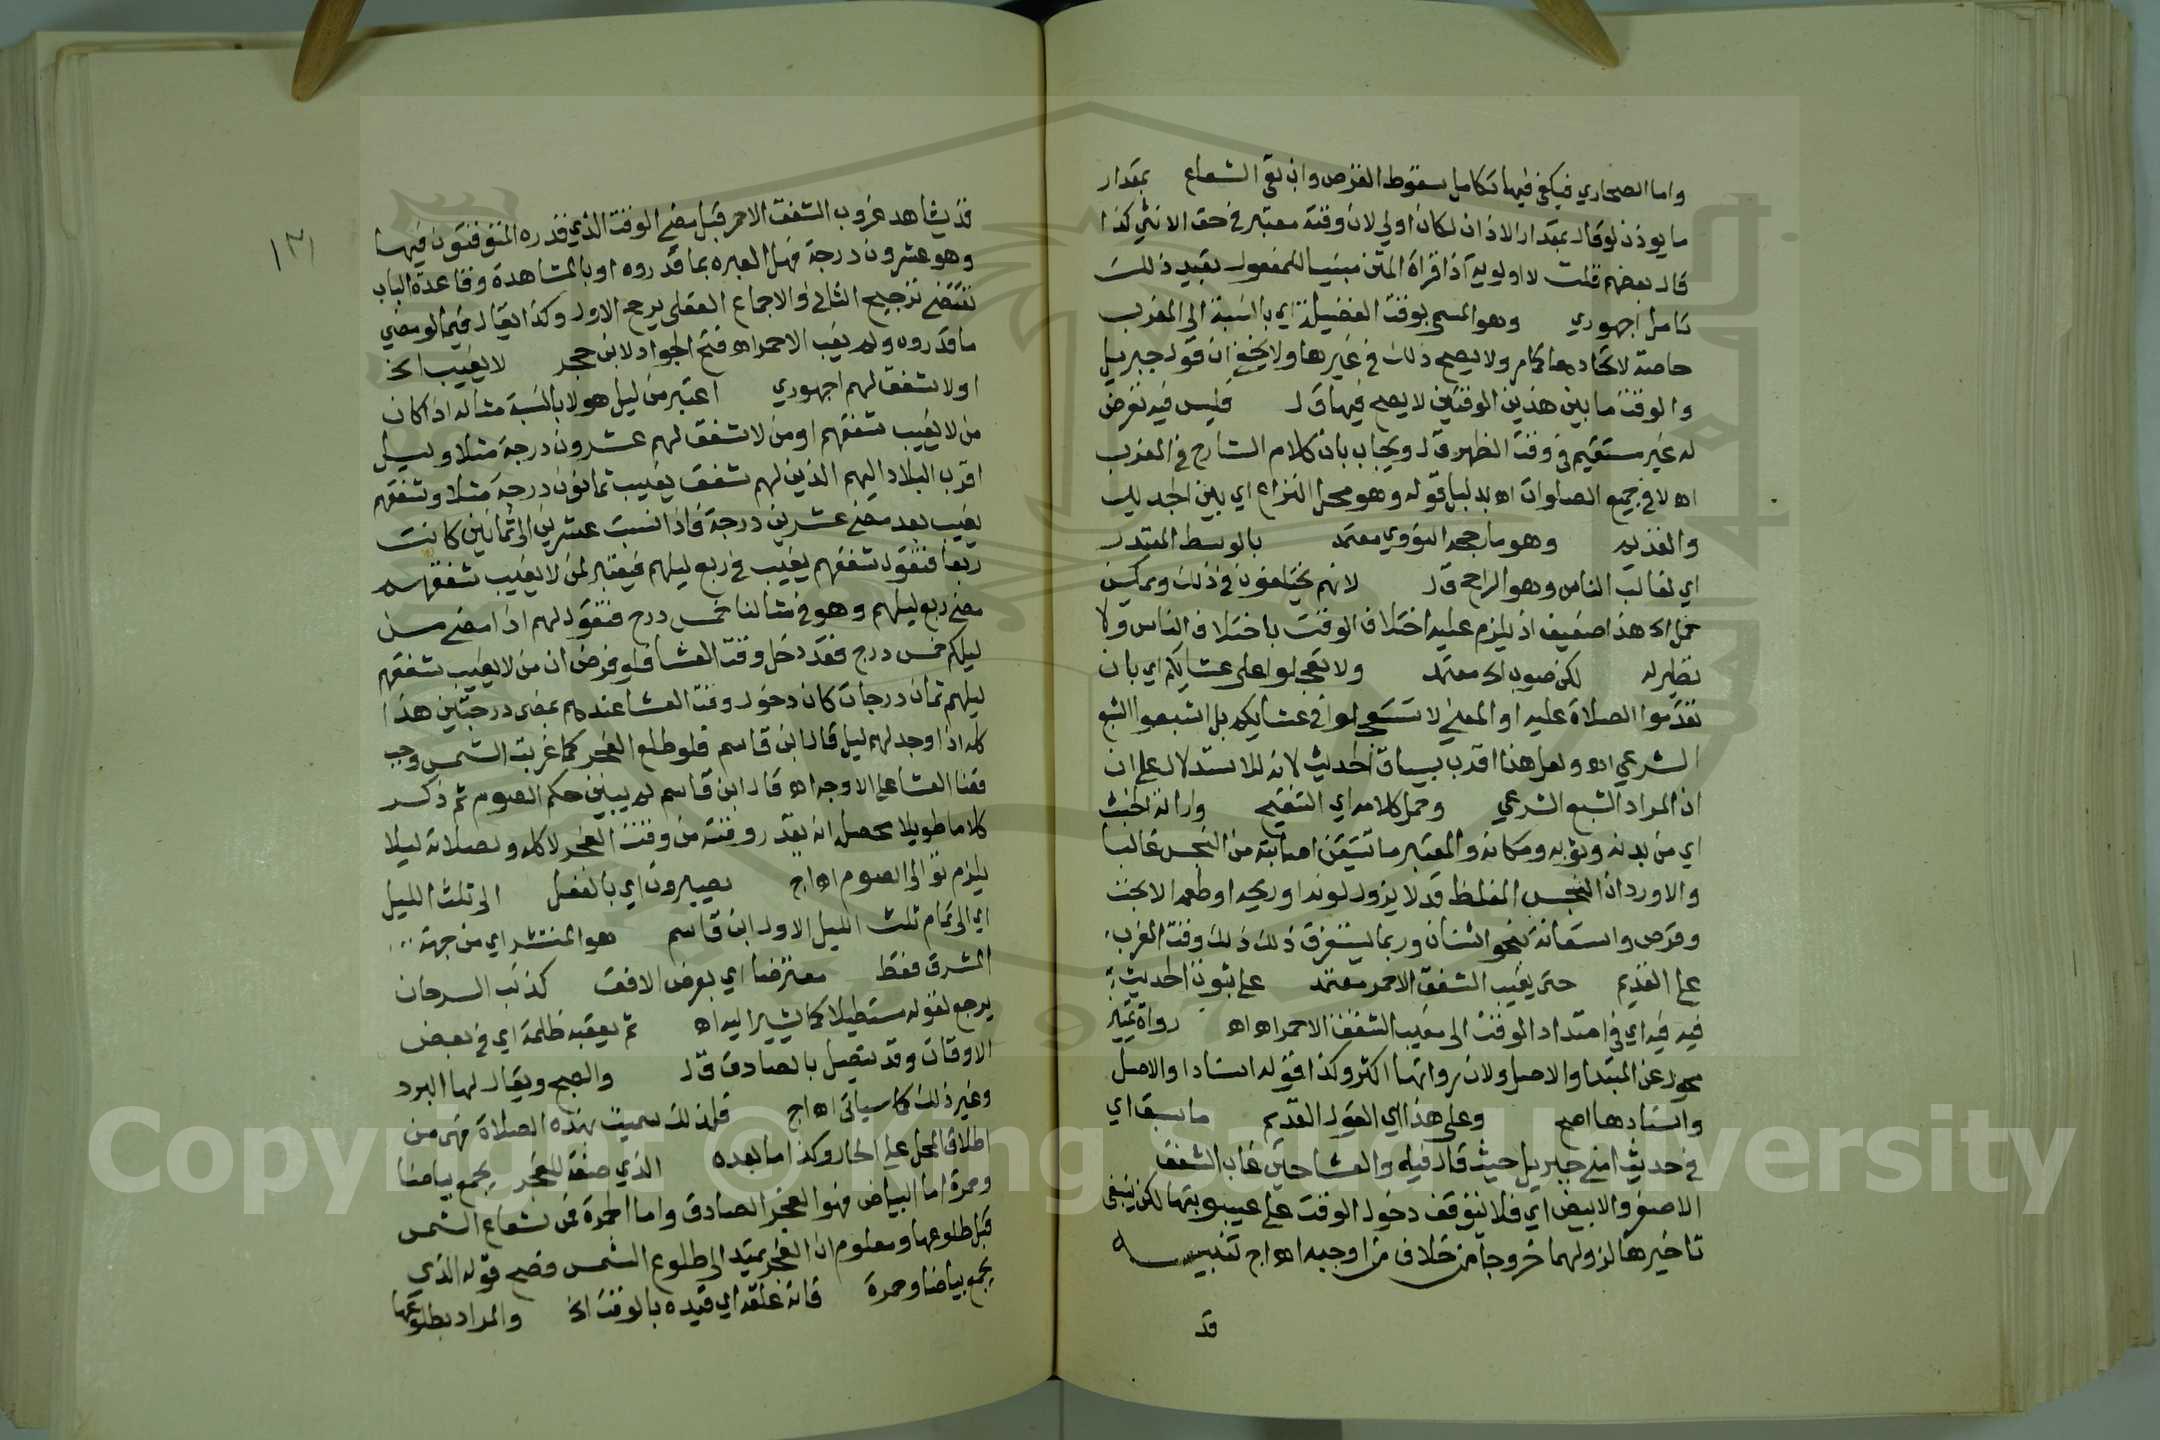 واما الصحاري فيكفي فيها تكامل سقوط القرص وان بقي الشعاع بمقدار
ما يوذن لو قال بمقدار الاذان لكان اولي لان وقته معتبر في حق الانثي كذا
قال بعضهم قلت لا اولوية اذ اقراة المتن مبنيا للمفعول بفيد ذلك
تامل اجهوري وهو المسمي بوقت الفضيلة اي بالنسبة الي المغرب
خاصة لاتحادهما كما مر ولا يصح ذلك في غيرها ولا يخفي ان قول جبريل
والوقت ما بين هذين الوقتين لا يصح فيها ق ل فليس فيه تعرض
له غير مستقيم في وقت الظهر ق ل ويجاب بان كلام الشارح في المغرب
اه لا في جميع الصلوات اه بدليل قوله وهو محل النزاع اي بين الجديد
والقديم وهو ما رجحه النووي معتمد بالوسط المعتدل
اي لغالب الناس وهو الراجح ق ل لانهم يختلفون في ذلك ويمكن
حمل الخ هذا ضعيف اذ يلزم عليه اختلاف الوقت باختلاف الناس ولا
نظير له لكن صوب الخ معتمد ولا تعجلوا علي عشايكم اي بان
تقدموا الصلاة عليه او المعني لا تستعجلوا في عشايكم بل اشبعوا الشبع
الشرعي اه ولعل هذا اقرب بسياق الحديث لانه للاستدلال علي ان
ان المراد الشبع الشرعي وحمل كلامه اي التنقيح وازالة الخبث
اي من بدنه وثوبه ومكانه والمعتبر ما تيقن اصابته من النجس غالبا
والا ورد ان النجس المغلظ قد لا يزول لونه او ريحه او طعمه الا بحت
وقرص واستعانة بنحو اشنان وربما يستغرق ذلك ذلك وقت المغرب
علي القديم حتي يغيب الشفق الاحمر معتمد علي ثبوت الحديث
فيه فيه اي في امتداد الوقت الي مغيب الشفق الاحمر اه رواة تمييز
محول عن المبتدا والاصل ولان رواتها اكثر وكذا قوله اسنادا والاصل
واسنادها اصح وعلي هذا اي القول القديم ما سبق اي
في حديث امني جبريل حيث قال فيه والعشا حين غاب الشفق
الاصفر والابيض اي فلا يتوقف دخول الوقت علي غيبوبتها لكن ينبغي
تاخيرها لزوالهما خروجا من خلاف من اوجبه اه اج تنبيه
قد
١٣١
قد يشاهد غروب الشفق الاحمر قبل مضي الوقت الذي قدره الموقتون فيها
وهو عشرون درجة فهل العبرة بما قدروه او بالمشاهدة وقاعدة الباب
تقتضي ترجيح الثاني والاجماع الفعلي يرجح الاول وكذا يقال فيما لو مضي
ما قدروه ولم يغب الاحمر اه فتح الجواد لابن حجر لا يغيب الخ
او لا شفق لهم اجهوري اعتبر من ليل هولا بالنسبة مثاله اذا كان
من لا يغيب شفقهم او من لا شفق لهم عشرون درجة مثلا وليل
اقرب البلاد اليهم الذين لهم شفق يغيب ثمانون درجة مثلا وشفقهم
يغيب بعد مضي عشرين درجة فاذا نسبت عشرين الي ثمانين كانت
ربعا فنقول شفقهم يغيب في ربع ليلهم فيعتبر لمن لا يغيب شفقهم
مضي ربع ليلهم وهو في مثالنا خمس درج فنقول لهم اذا مضي من
ليلكم خمس درج فقد دخل وقت العشا فلو فرض ان من لا يغيب شفقهم
ليلهم ثمان درجات كان دخول وقت العشا عندهم بمضي درجتين هذا
كله اذا وجد لهم ليل قال ابن قاسم فلو طلع الفجر كما غربت الشمس وجب
قضا العشا علي الاوجه اه قال ابن قاسم لم يبين حكم الصوم ثم ذكر
كلاما طويلا محصله انه يقدر وقته من وقت الفجر لاكله وصلاته ليلا
يلزم توالي الصوم اه اج يصيرون اي بالفعل الي ثلث الليل
اي الي تمام ثلث الليل الاول ابن قاسم هو المنتشر اي من جهة
الشرق فقط معترضا اي بعرض الافق كذنب السرحان
يرجع لقوله مستطيلا كما يشير اليه اه ثم يعقبه ظلمة اي في بعض
الاوقات وقد يتصل بالصادق ق ل والصبح ويقال لها البرد
وغير ذلك كما سياتي اه اج فلذلك سميت بهذه الصلاة فهو من
اطلاق المحل علي الحال وكذا ما بعده الذي صفة للفجر يجمع بياضا
وحمرة اما البياض فهو الفجر الصادق واما الحمرة فمن شعاع الشمس
قبل طلوعها ومعلوم ان الفجر يمتد الي طلوع الشمس فصح قوله الذي
يجمع بياضا وحمرة فانه علقه اي قيده بالوقت الخ والمراد بطلوعها
Copyright © King Saud University